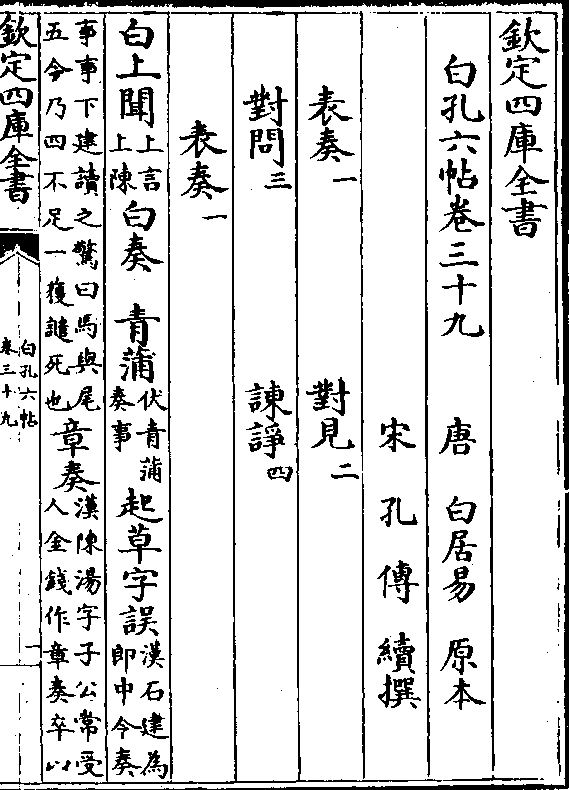 欽定四庫全書
白孔六帖卷三十九 唐 白居易 原本
宋 孔傳 續撰
表奏一 對見二
對問三 諫諍四
表奏一
白上聞 上言上陳 白奏 青蒲 伏青蒲奏事 起草字誤 漢石建為郎中令奏
事事下建讀之驚曰馬與尾五今乃四不足一獲譴死也 章奏 漢陳湯字子公常受人金錢作章奏卒以
欽定四庫全書
白孔六帖
卷三十九
一